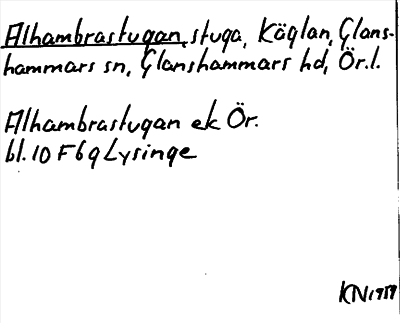 Alhambrastugan, stuga, Käglan, Glans-
hammars sn, Glanshammars hd, Ör.l.
Alhambrastugan ek Ör.
bl. 10 F 6 g Lysinge
KN 1959